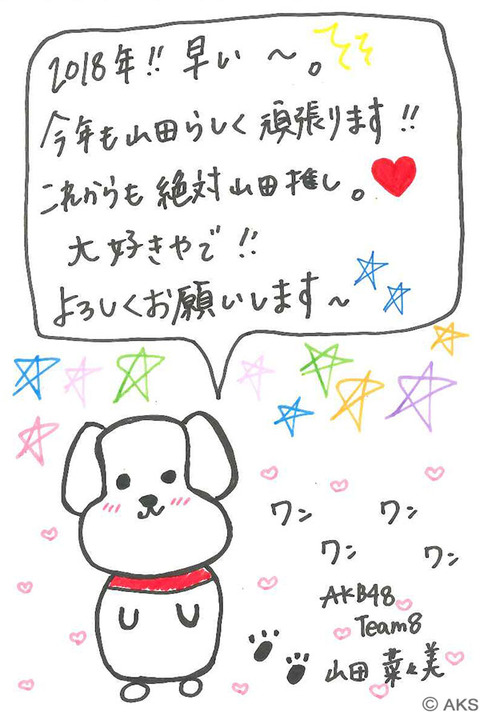 2018年!! 早い 〜。
今年も山田らしく頑張ります!!
これからも絶対山田推し。
大好きやで!!
よろしくお願いします〜
ワン ワン
ワン ワン
AKB48
Team8
山田 菜々美
© AKS